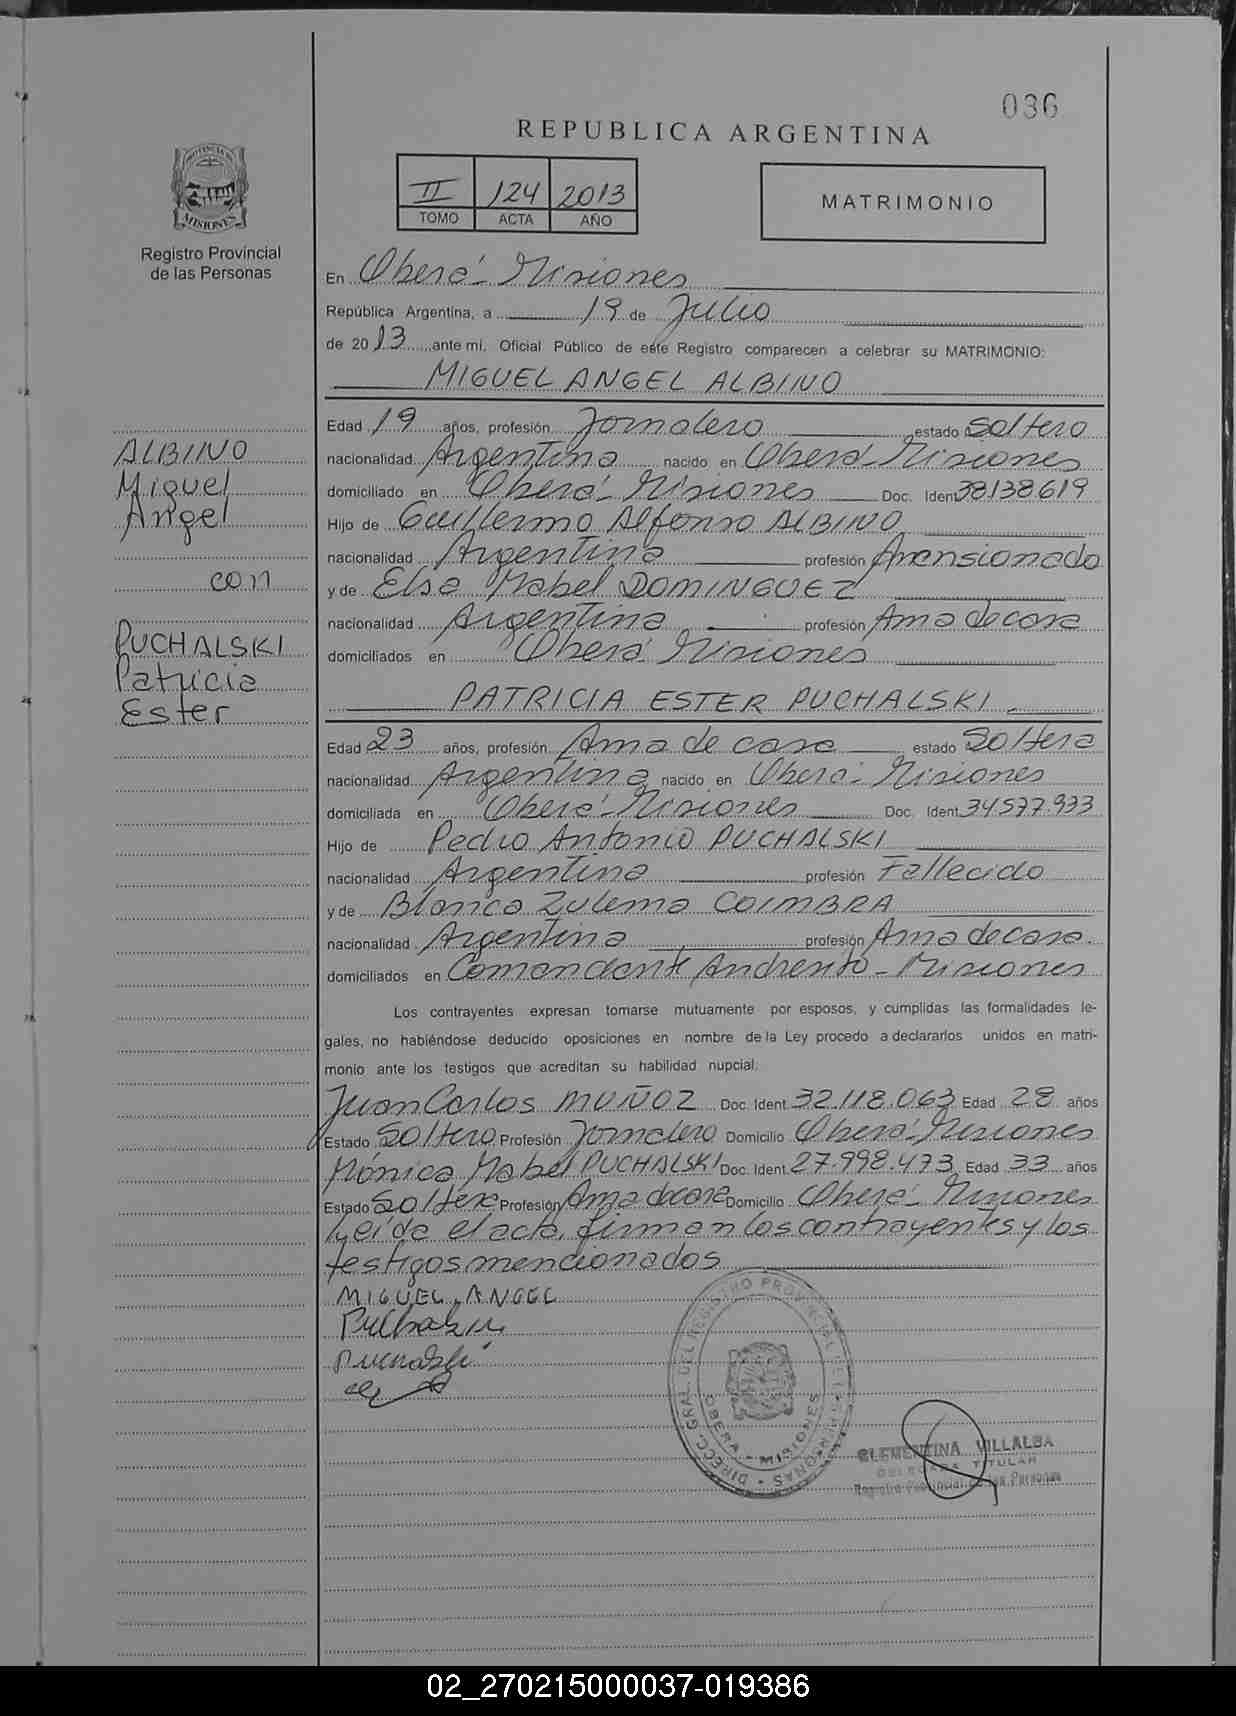 036
REPUBLICA ARGENTINA
II 124 2013
TOMO ACTA AÑO
MATRIMONIO
PROVINCIA DE
MISIONES
Registro Provincial
de las Personas
En Oberá - Misiones
República Argentina, a 19 de Julio
de 2013 ante mi, Oficial Público de este Registro comparecen a celebrar su MATRIMONIO:
MIGUEL ANGEL ALBINO
Edad 19 años, profesión Jornalero estado Soltero
nacionalidad Argentina nacido en Oberá - Misiones
domiciliado en Oberá - Misiones Doc. Ident. 38.138.619
Hijo de Guillermo Alfonso ALBINO
nacionalidad Argentina profesión Pensionado
y de Elsa Mabel DOMINGUEZ
nacionalidad Argentina profesión Ama de casa
domiciliados en Oberá Misiones
PATRICIA ESTER PUCHALSKI
Edad 23 años, profesión Ama de casa estado Soltera
nacionalidad Argentina nacido en Oberá - Misiones
domiciliada en Oberá - Misiones Doc. Ident. 34.577.933
Hijo de Pedro Antonio PUCHALSKI
nacionalidad Argentina profesión Fallecido
y de Blanca Zulema COIMBRA
nacionalidad Argentina profesión Ama de casa.
domiciliados en Comandante Andresito - Misiones
Los contrayentes expresan tomarse mutuamente por esposos, y cumplidas las formalidades le-
gales, no habiéndose deducido oposiciones en nombre de la Ley procedo a declararlos unidos en matri-
monio ante los testigos que acreditan su habilidad nupcial.
Juan Carlos MUÑOZ Doc. Ident. 32.118.063 Edad 28 años
Estado Soltero Profesión Jornalero Domicilio Oberá - Misiones
Mónica Mabel PUCHALSKI Doc. Ident. 27.998.473 Edad 33 años
Estado Soltera Profesión Ama de casa Domicilio Oberá - Misiones
Leída el acta, firman los contrayentes y los
testigos mencionados
MIGUEL ANGEL
Puchalski
ALBINO
Miguel
Angel
con
PUCHALSKI
Patricia
Ester
DIRECC. GRAL. DEL REGISTRO PROVINCIAL DE LAS PERSONAS
OBERA - MISIONES
CLEMENTINA VILLALBA
DELEGADA TITULAR
Registro Provincial de las Personas
02_270215000037-019386